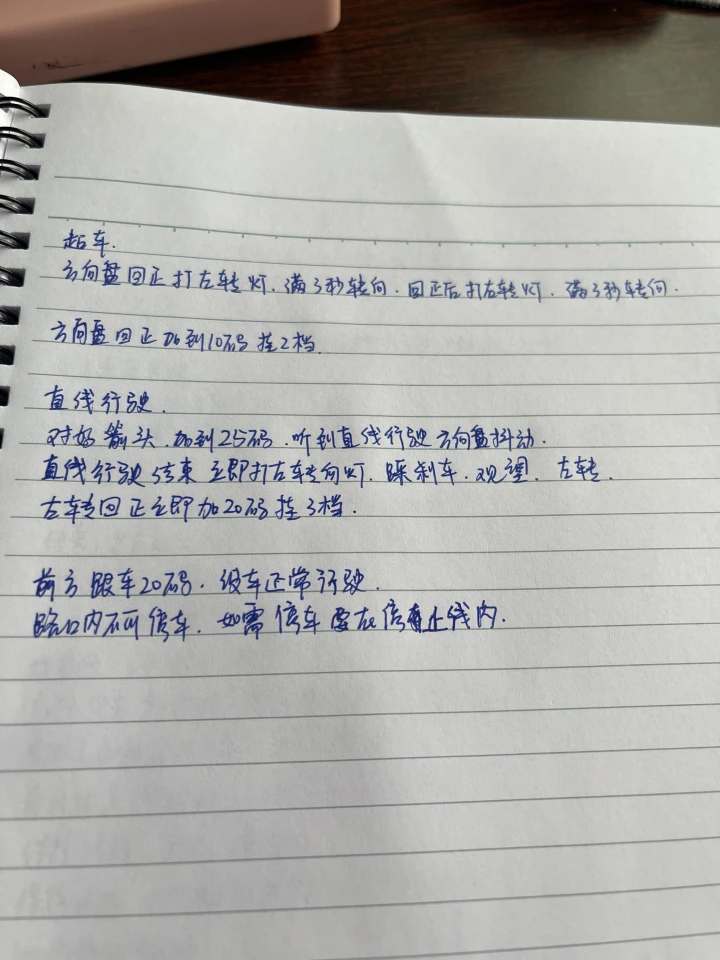 起车.
方向盘回正打左转灯.满3秒转向.回正后打右转灯.满3秒转向.
方向盘回正加到10码挂2档.
直线行驶.
对好箭头.加到25码.听到直线行驶方向盘抖动.
直线行驶结束立即打左转向灯.踩刹车.观望.左转.
左转回正立即加20码挂3档.
前方跟车20码.没车正常行驶.
路口内不可停车.如需停车要在停止线内.